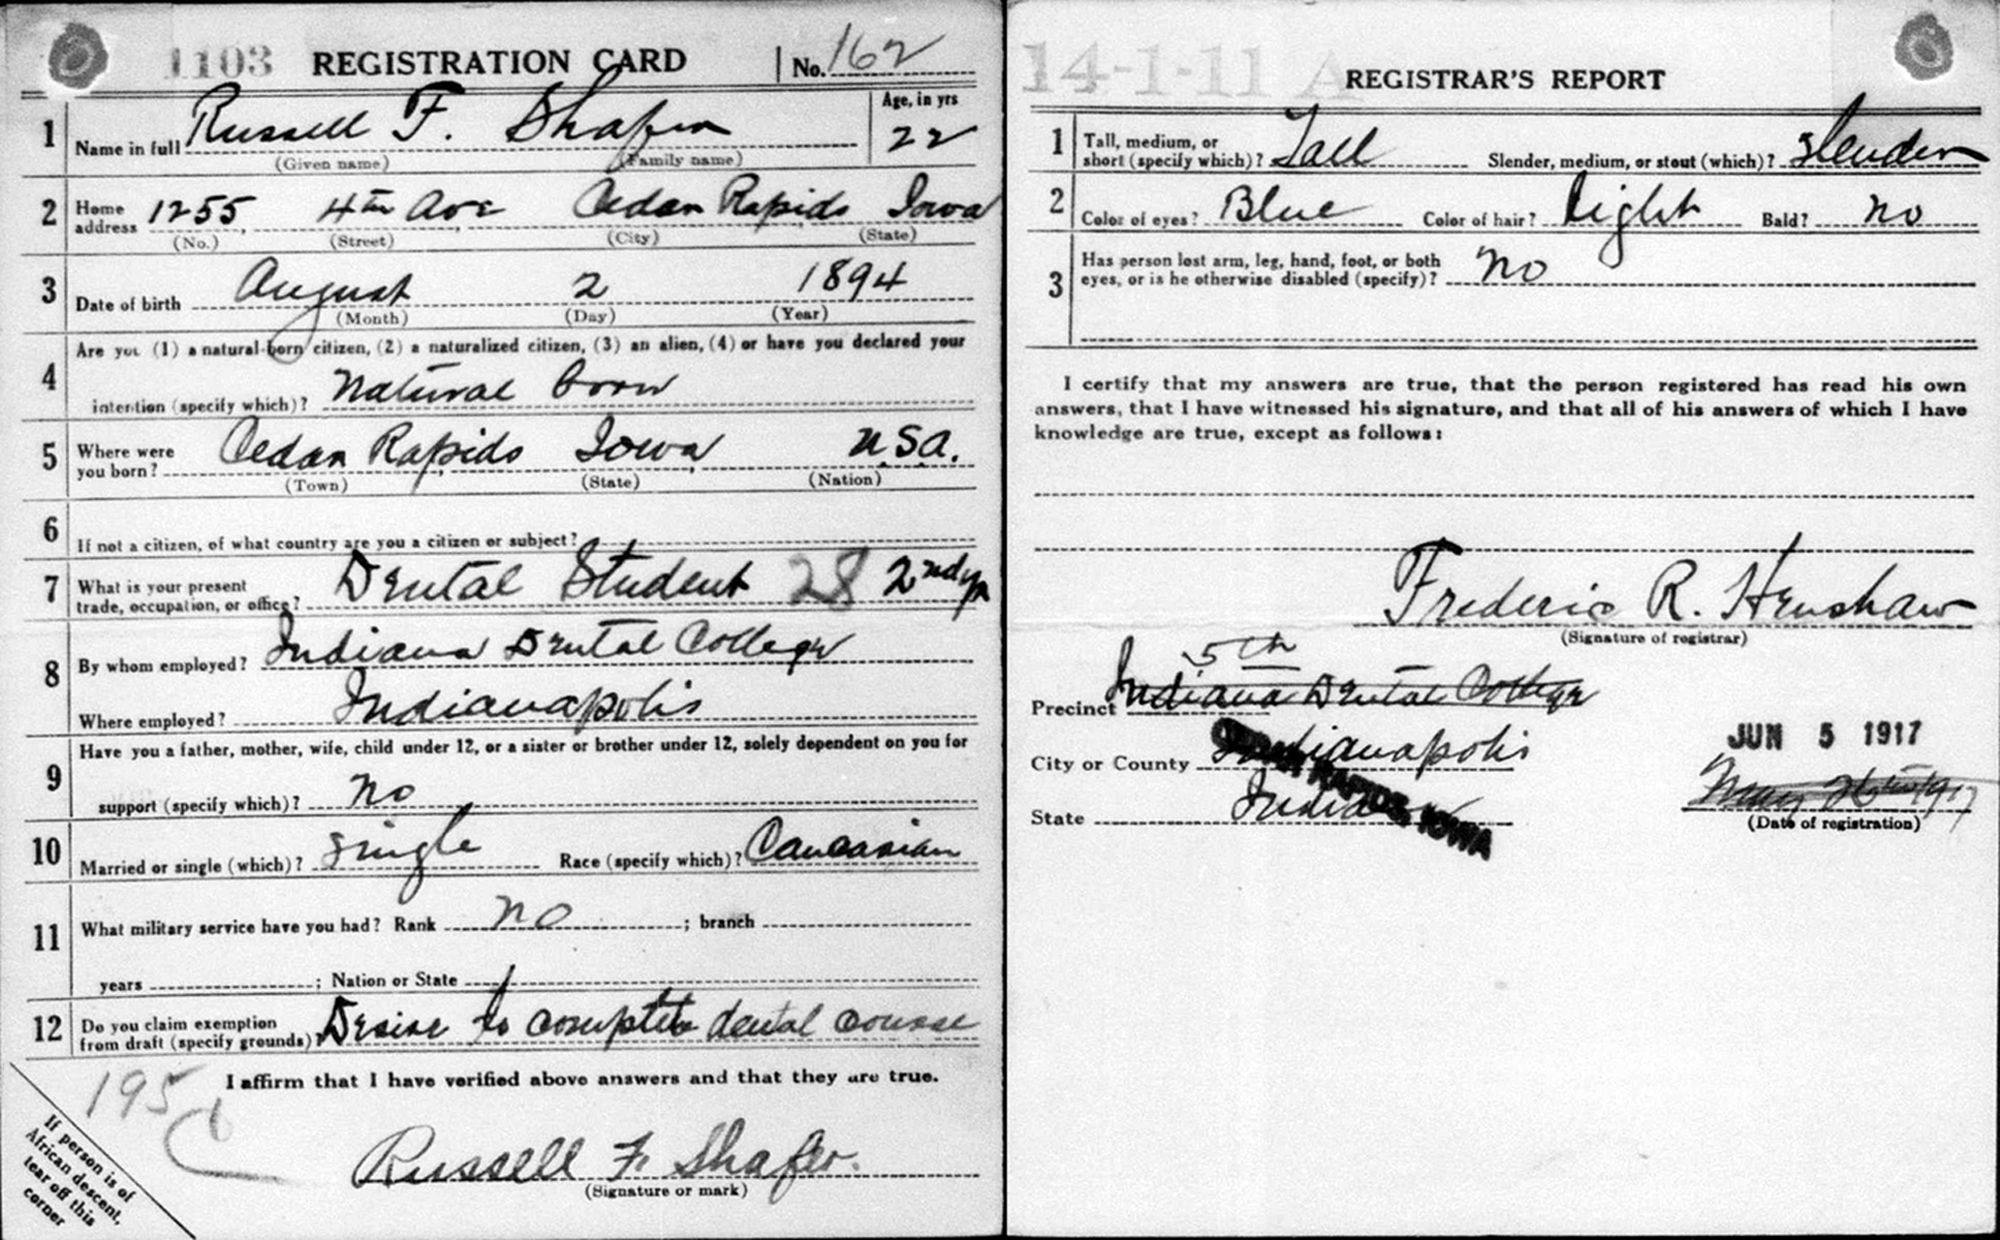 1103 REGISTRATION CARD No. 162
1 Name in full Russell F. Shafer Age, in yrs 22
(Given name) (Family name)
2 Home address 1255 4th Ave Cedar Rapids Iowa
(No.) (Street) (City) (State)
3 Date of birth August 2 1894
(Month) (Day) (Year)
4 Are you (1) a natural-born citizen, (2) a naturalized citizen, (3) an alien, (4) or have you declared your
intention (specify which)? Natural born
5 Where were you born? Cedar Rapids Iowa U.S.A.
(Town) (State) (Nation)
6 If not a citizen, of what country are you a citizen or subject?
7 What is your present trade, occupation, or office? Dental Student 28 2nd yr
8 By whom employed? Indiana Dental College
Where employed? Indianapolis
9 Have you a father, mother, wife, child under 12, or a sister or brother under 12, solely dependent on you for
support (specify which)? No
10 Married or single (which)? Single Race (specify which)? Caucasian
11 What military service have you had? Rank no ; branch
years ; Nation or State
12 Do you claim exemption from draft (specify grounds)? Desire to complete dental course
I affirm that I have verified above answers and that they are true.
195
Russell F. Shafer.
(Signature or mark)
If person is of
African descent,
tear off this
corner
14-1-11 A
REGISTRAR'S REPORT
1 Tall, medium, or short (specify which)? Tall Slender, medium, or stout (which)? Slender
2 Color of eyes? Blue Color of hair? Light Bald? No
3 Has person lost arm, leg, hand, foot, or both
eyes, or is he otherwise disabled (specify)? No
I certify that my answers are true, that the person registered has read his own
answers, that I have witnessed his signature, and that all of his answers of which I have
knowledge are true, except as follows:
Frederic R. Henshaw
(Signature of registrar)
5th
Precinct Indiana Dental College
City or County Indianapolis
CEDAR RAPIDS, IOWA
State Indiana
JUN 5 1917
May 26th 1917
(Date of registration)